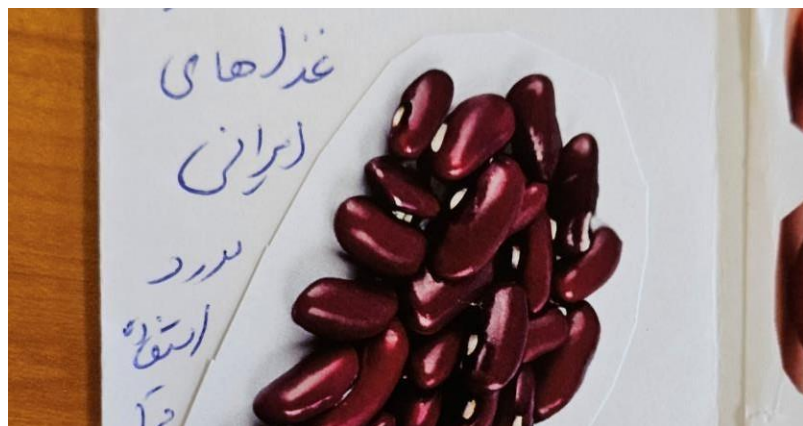 غذاهای
ایرانی
مورد
استفاده